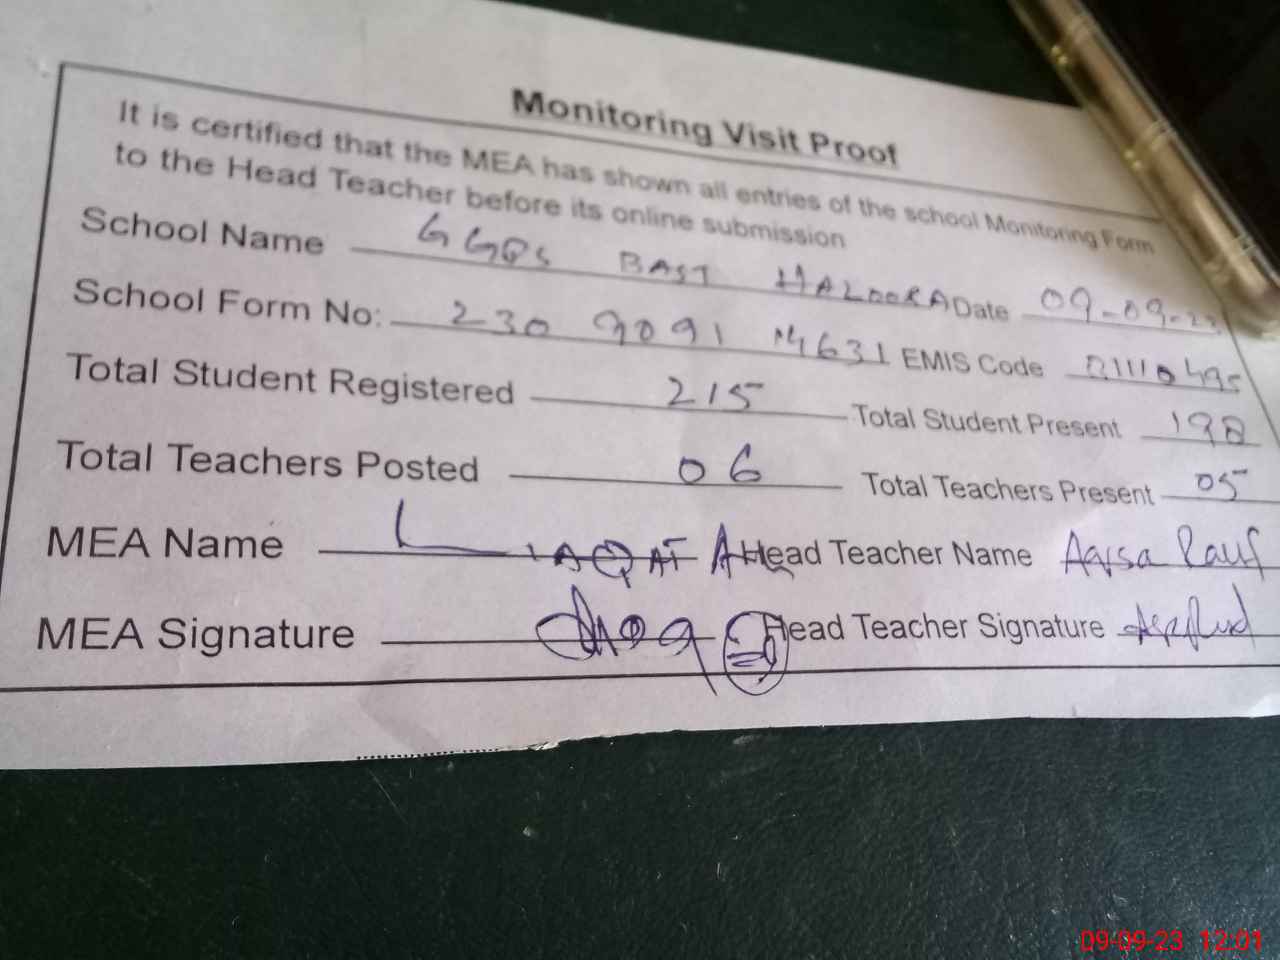 Monitoring Visit Proof
It is certified that the MEA has shown all entries of the school Monitoring Form
to the Head Teacher before its online submission
School Name GGPS BAST HALOORA Date 09-09-23
School Form No: 230 9091 14631 EMIS Code 31110495
Total Student Registered 215 Total Student Present 198
Total Teachers Posted 06 Total Teachers Present 05
MEA Name LIAQAT Head Teacher Name Rauf
MEA Signature Head Teacher Signature
09-09-23 12:01